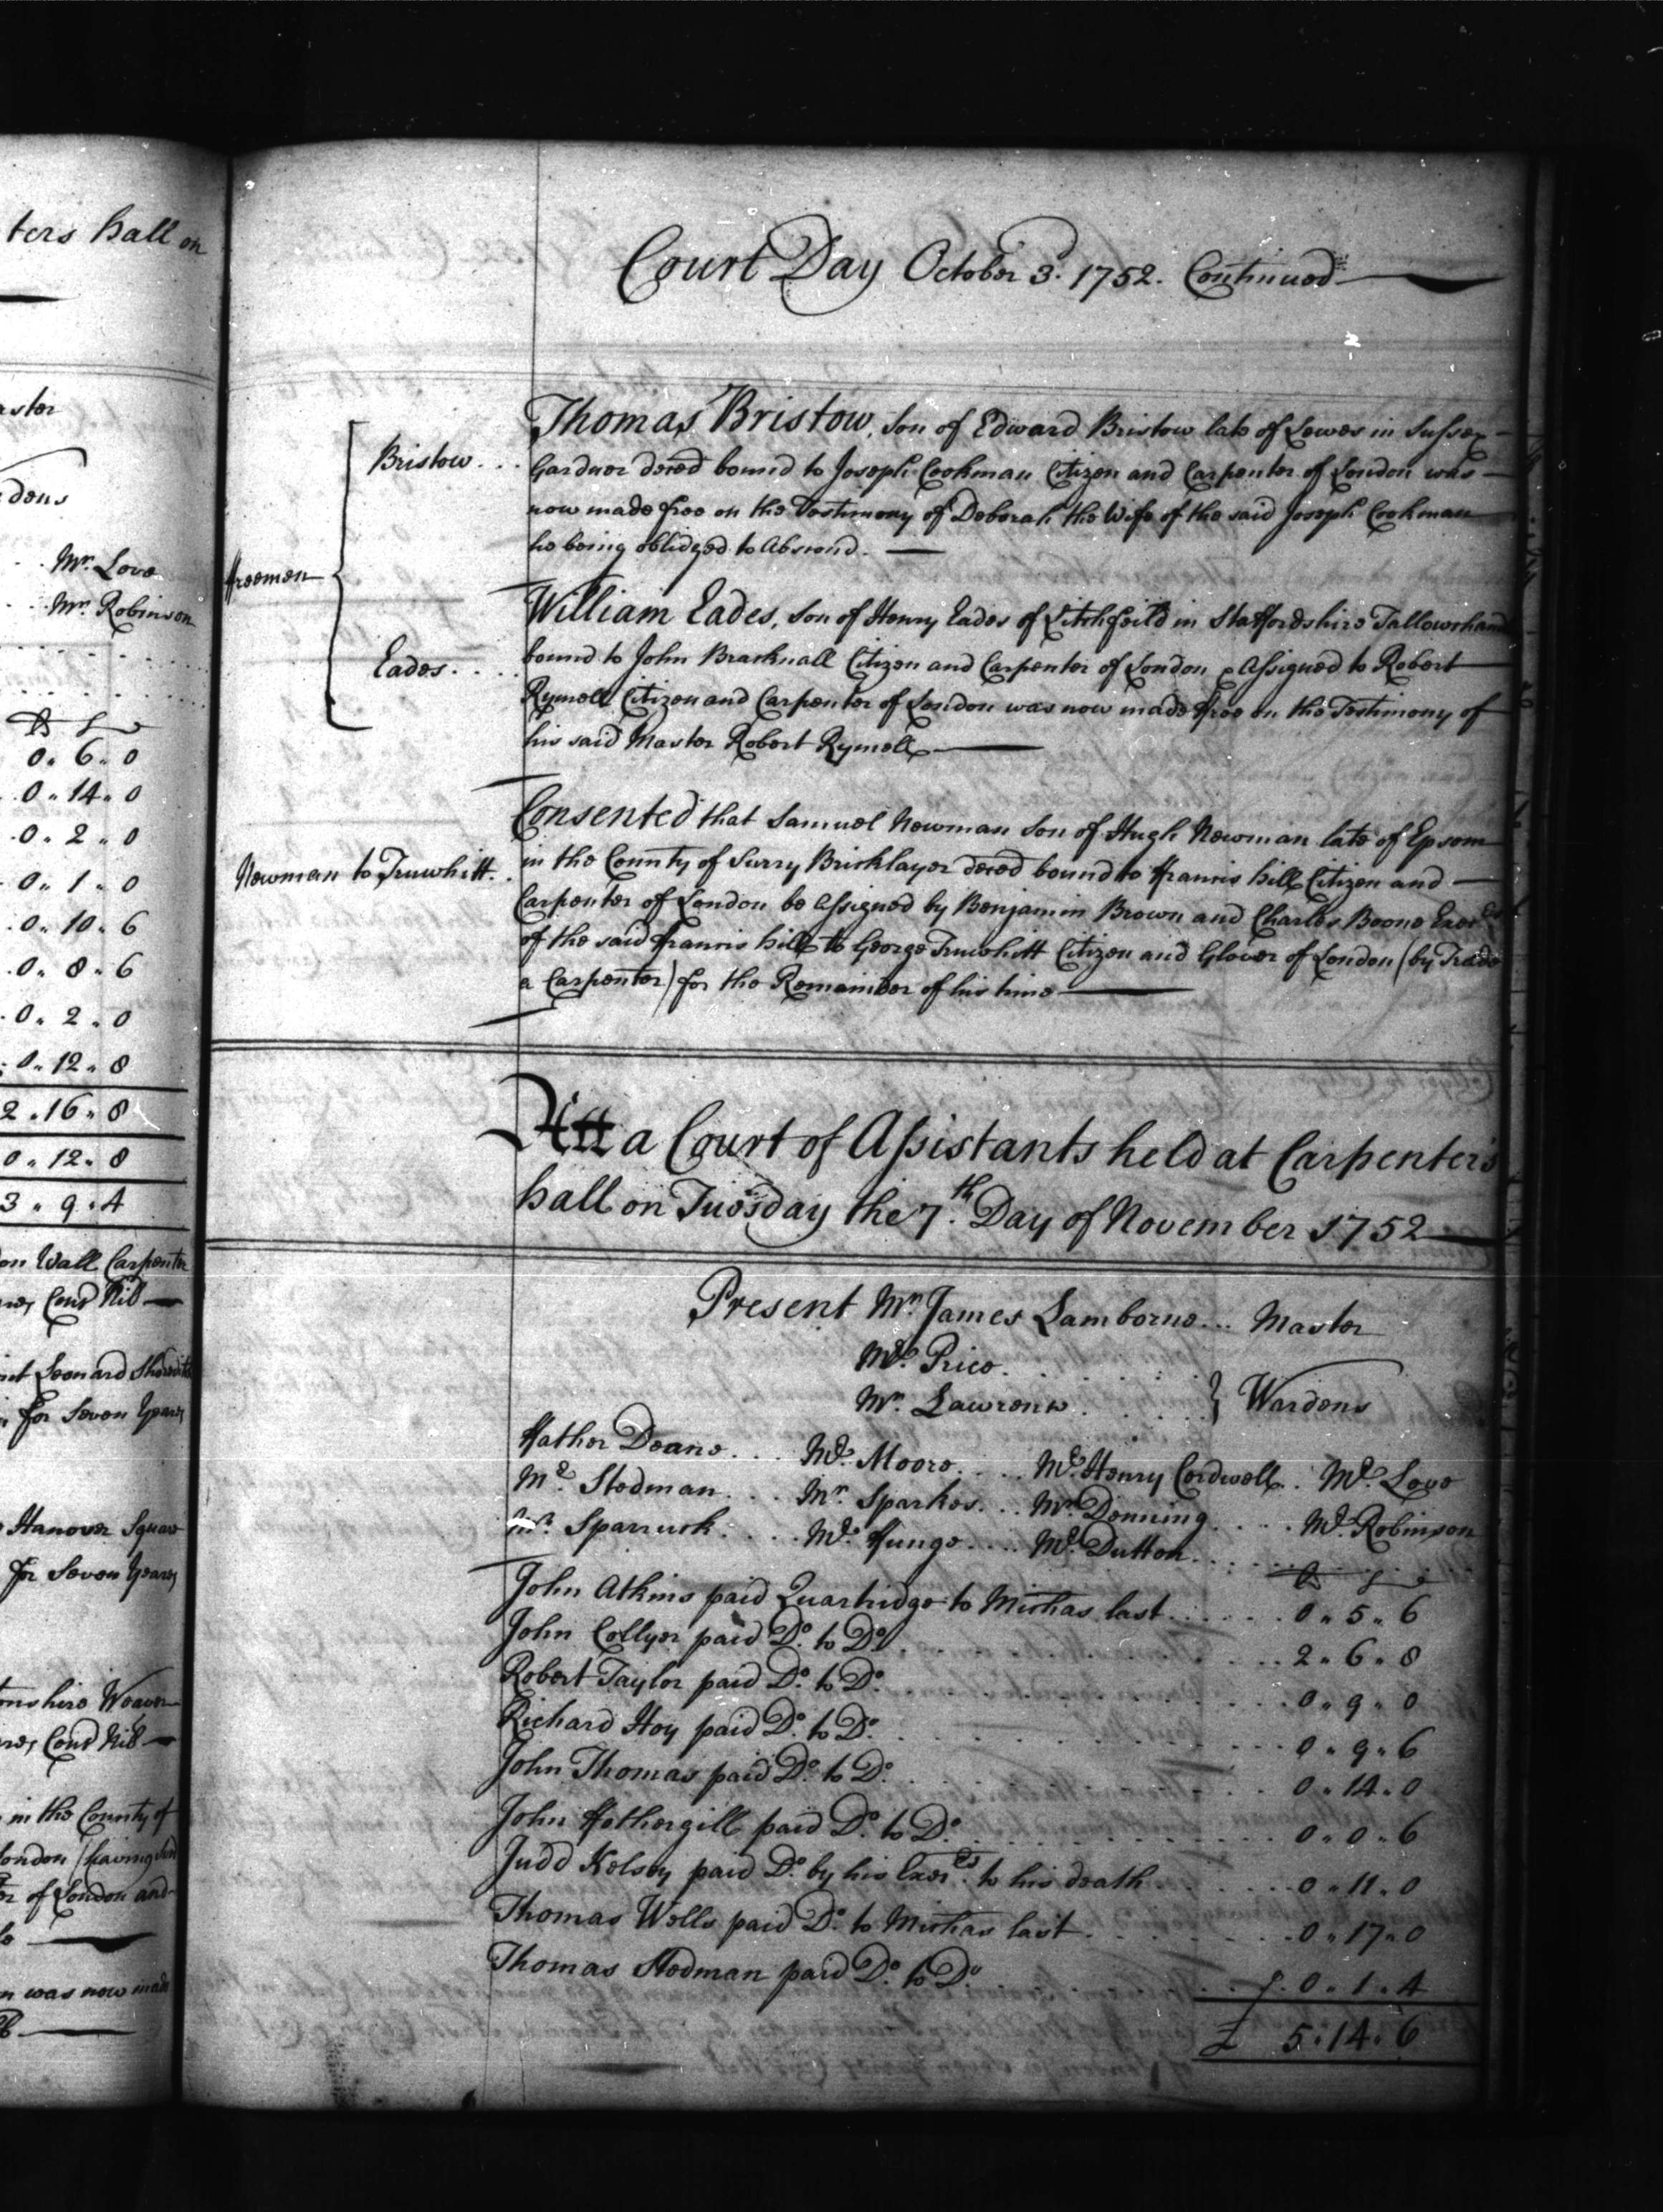 ters hall on
Mr. Love
Mr. Robinson
0 " 6 " 0
0 " 14 " 0
0 " 2 " 0
0 " 1 " 0
0 " 10 " 6
0 " 8 " 6
0 " 2 " 0
0 " 12 " 8
2 " 16 " 8
0 " 12 " 8
3 " 9 " 4
on Wall Carpenter
Leonard Shoreditch
for Seven Years
Hanover Square
for Seven Years
onshire Weaver
in the County of
London (having
of London and
n was now made
Court Day October 3d. 1752. Continued
Thomas Bristow, Son of Edward Bristow late of Lewes in Sussex
Bristow . . . Gardner deced bound to Joseph Cookman Citizen and Carpenter of London was
now made free on the Testimony of Deborah the Wife of the said Joseph Cookman
he being oblidged to Abscond.
Freemen
William Eades, Son of Henry Eades of Litchfeild in Staffordshire Tallowchand
Eades . . . . bound to John Bracknall Citizen and Carpenter of London & Assigned to Robert
Rymell Citizen and Carpenter of London was now made free on the Testimony of
his said Master Robert Rymell
Consented that Samuel Newman Son of Hugh Newman late of Epsom
Newman to Truwhitt. . in the County of Surry Bricklayer deced bound to Francis Hill Citizen and
Carpenter of London be Assigned by Benjamin Brown and Charles Boone Exec.rs
of the said Francis Hill to George Truwhitt Citizen and Glover of London (by Trade
a Carpenter) for the Remainder of his time
Att a Court of Assistants held at Carpenters
hall on Tuesday the 7.th Day of November 1752
Present Mr. James Lamborne... Master
Mr. Price.
Mr. Lawrence. } Wardens
Father Deane. . . . Mr. Moore. . . . Mr. Henry Cordwell. . Mr. Love
Mr. Stedman. . . Mr. Sparkes. . . Mr. Denning. . . . Mr. Robinson
Mr. Sparruck. . . . Mr. Funge. . . . Mr. Dutton
John Atkins paid Quartridge to Michas last . . . . . . 0 " 5 " 6
John Collyer paid Do. to Do. 2 " 6 " 8
Robert Taylor paid Do. to Do. 0 " 9 " 0
Richard Hoy paid Do. to Do. 0 " 9 " 6
John Thomas paid Do. to Do. 0 " 14 " 0
John Fothergill paid Do. to Do. 0 " 0 " 6
Judd Kelsey paid Do. by his Exec.rs to his death 0 " 11 " 0
Thomas Wells paid Do. to Michas last 0 " 17 " 0
Thomas Stedman paid Do. to Do. 0 " 1 " 4
£ 5 " 14 " 6